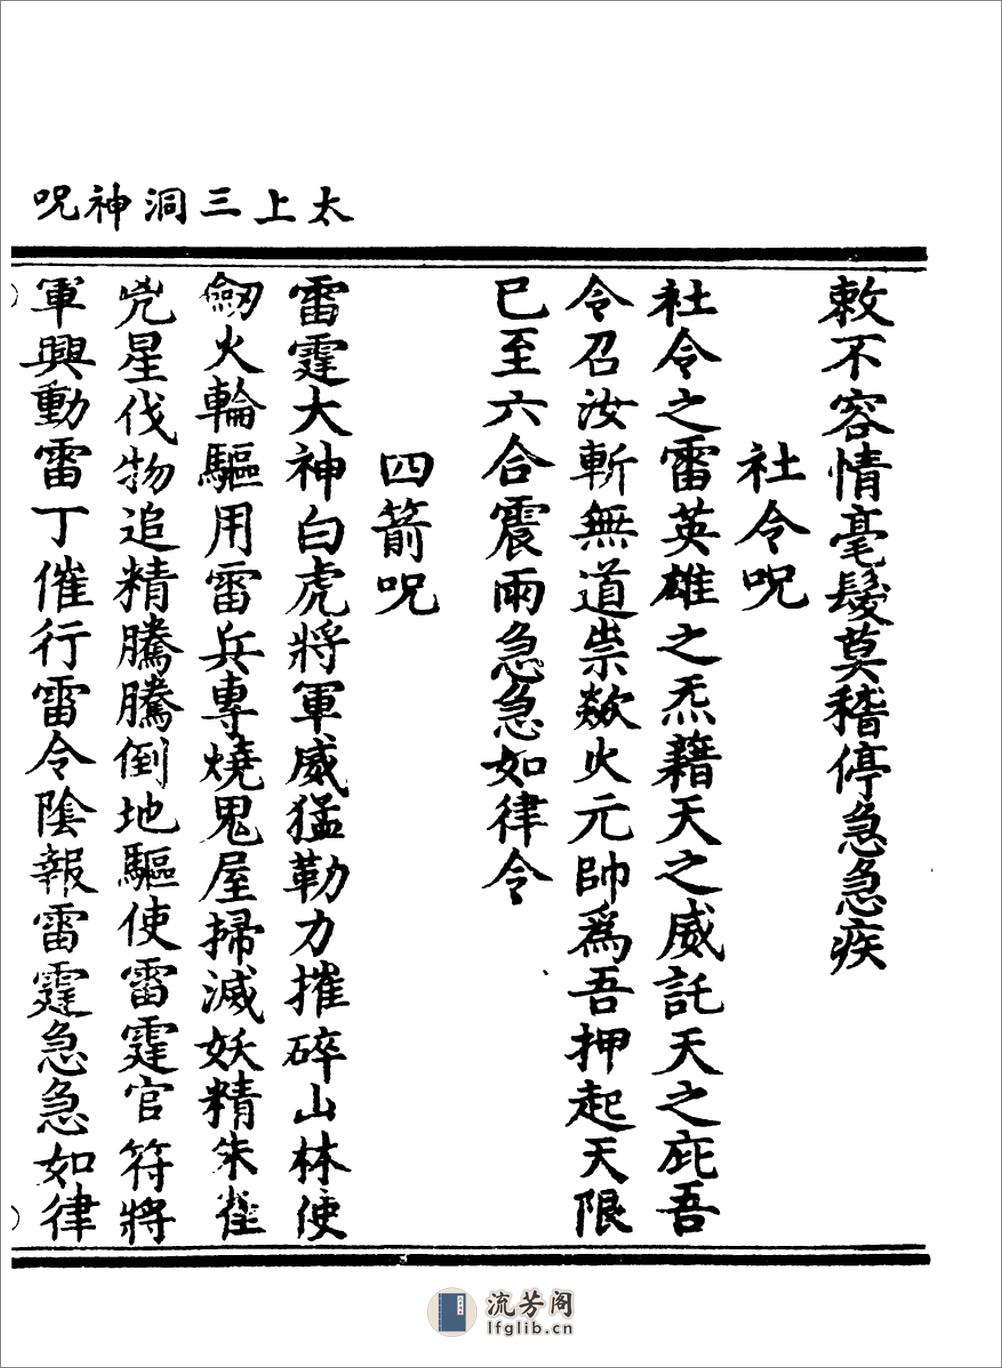 太上三洞神呪
敕不容情毫髮莫稽停急急疾
社令呪
社令之雷英雄之炁藉天之威託天之庇吾
令召汝斬無道祟歘火元帥爲吾押起天限
已至六合震雨急急如律令
四箭呪
雷霆大神白虎將軍威猛勒力摧碎山林使
劒火輪驅用雷兵專燒鬼屋掃滅妖精朱雀
兇星伐物追精騰騰倒地驅使雷霆官符將
軍興動雷丁催行雷令陰報雷霆急急如律
流芳阁
lfglib.cn